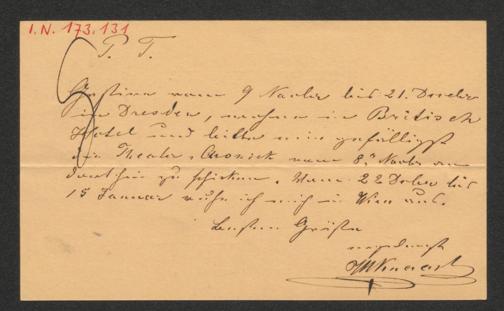 I.N. 173.131
P. T.
Gastire vom 9 Novbr bis 21. Decebr
in Dresden, wohne in British
Hotel und bitte mir gefälligst
die Theater-Chronick vom 8ten Novbr an
dorthin zu schicken. Vom 22 Decbr bis
15 Januar ruhe ich mich in Wien aus.
Besten Gruss
ergebenst